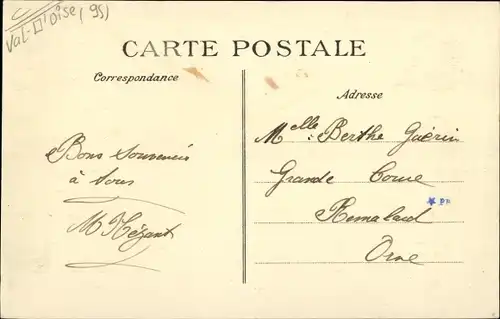 Val-D'Oise (95)
CARTE POSTALE
Correspondance
Adresse
Bons Souvenirs
à tous
M Hézant
Melle Berthe Guérin
Grande
Remalard
Orne